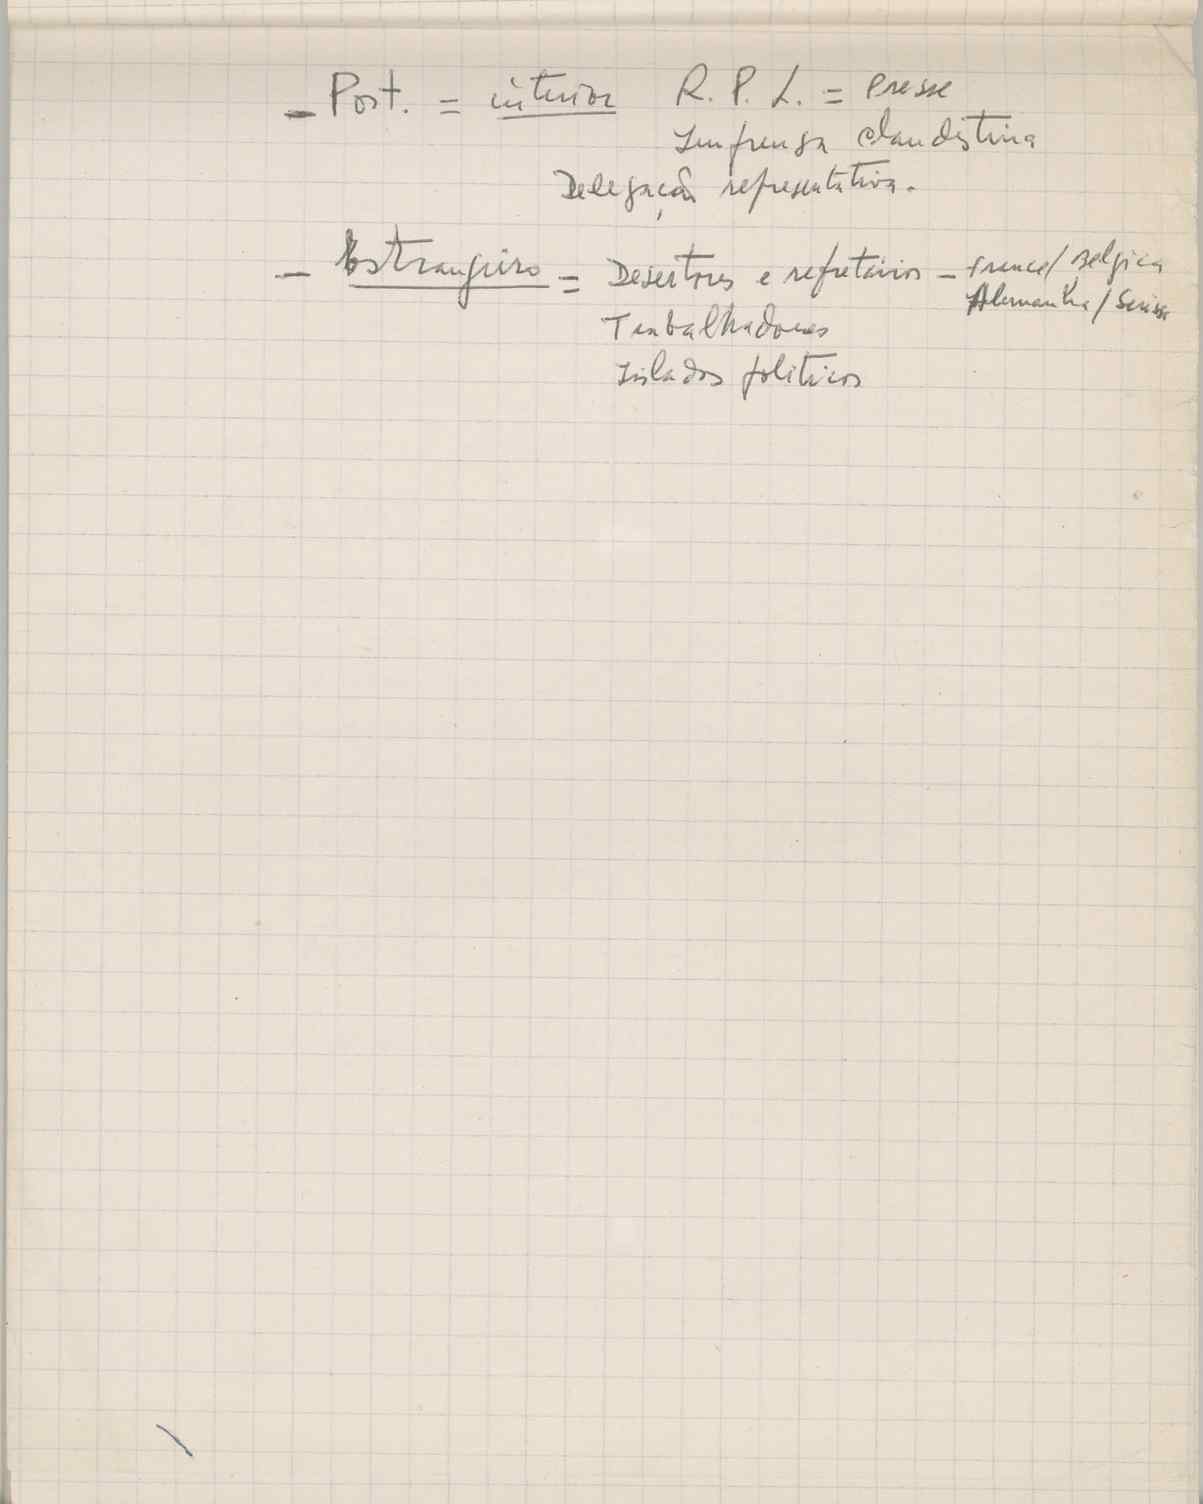 - Port. = interior R. P. L. = Presse
Imprensa clandestina
Delegação representativa.
- Estrangeiro = Desertores e refratários - France / Belgica
Alemanha / Suissa
Trabalhadores
Isolados politicos